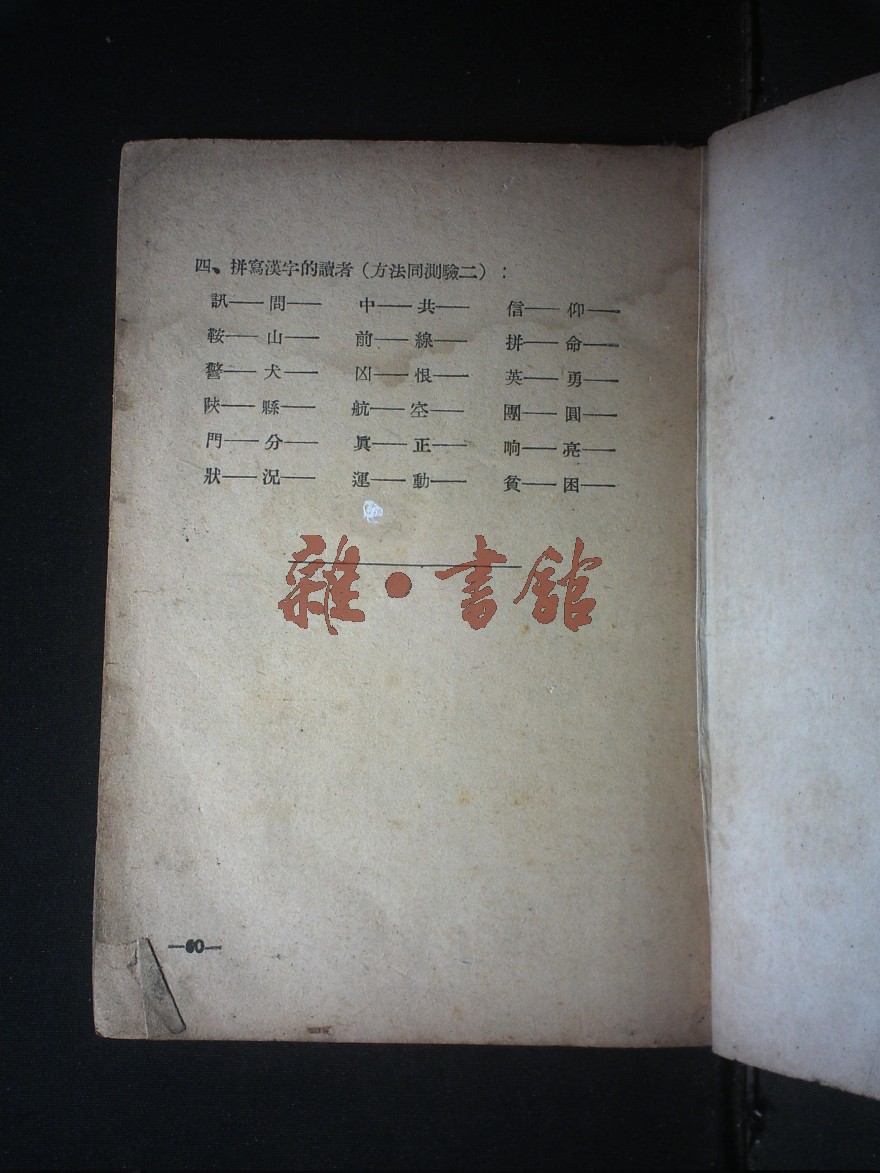 四、拼寫漢字的讀者（方法同測驗二）：
訊——問——　中——共——　信——仰——
鞍——山——　前——線——　拼——命——
警——犬——　凶——恨——　英——勇——
陝——縣——　航——空——　團——圓——
門——分——　眞——正——　响——亮——
狀——況——　運——動——　貧——困——
雜・書館
—60—